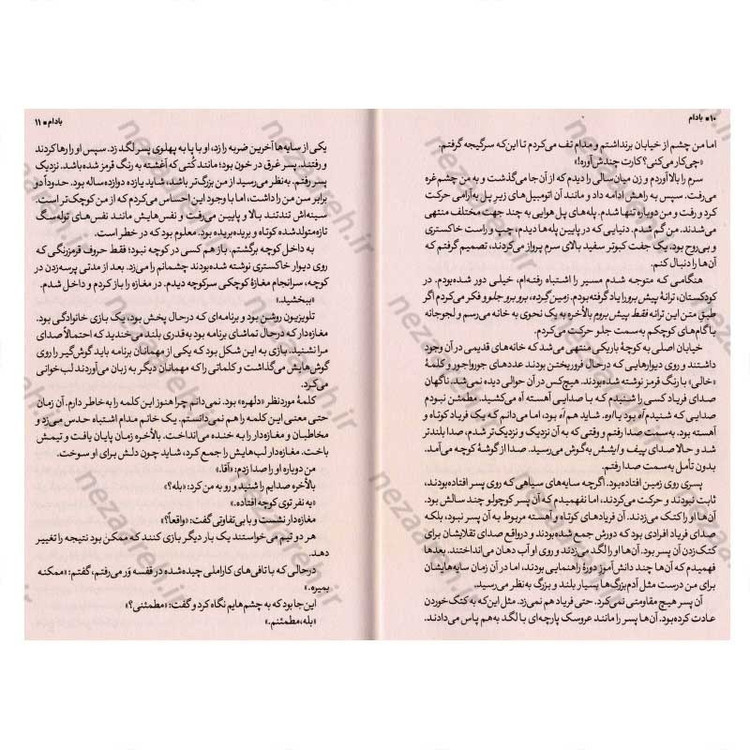 ۱۰ • بادام
اما من چشم از خیابان برنداشتم و مدام تف می‌کردم تا این‌که سرگیجه گرفتم.
«چی‌کار می‌کنی؟ کارت چندش‌آوره!»
سرم را بالا آوردم و زن میان‌سالی را دیدم که از آن‌جا می‌گذشت و به من چشم‌غره
می‌رفت. سپس به راهش ادامه داد و مانند آن اتومبیل‌های زیر پل به‌آرامی حرکت
کرد و رفت و من دوباره تنها شدم. پله‌های پل هوایی به چند جهت مختلف منتهی
می‌شدند. من گم شدم. دنیایی که در پایین پله‌ها دیدم، چپ و راست خاکستری
و بی‌روح بود. یک جفت کبوتر سفید بالای سرم پرواز می‌کردند، تصمیم گرفتم که
آن‌ها را دنبال کنم.
هنگامی که متوجه شدم مسیر را اشتباه رفته‌ام، خیلی دور شده‌بودم. در
کودکستان، ترانهٔ پیش برو را یاد گرفته بودم. زمین گرده، برو برو جلو و فکر می‌کردم اگر
طبق متن این ترانه فقط پیش بروم بالأخره به یک نحوی به خانه می‌رسم و لجوجانه
با گام‌های کوچکم به‌سمت جلو حرکت می‌کردم.
خیابان اصلی به کوچهٔ باریکی منتهی می‌شد که خانه‌های قدیمی در آن وجود
داشتند و روی دیوارهایی که درحال فروریختن بودند عددهای جورواجور و کلمهٔ
«خالی» با رنگ قرمز نوشته شده‌بودند. هیچ‌کس در آن حوالی دیده نمی‌شد. ناگهان
صدای فریاد کسی را شنیدم که با صدایی آهسته آه می‌کشید. مطمئن نبودم
صدایی که شنیدم آه بود یا اوه. شاید هم آه بود، اما می‌دانم که یک فریاد کوتاه و
آهسته بود. به‌سمت صدا رفتم و وقتی که به آن نزدیک و نزدیک‌تر شدم، صدا بلندتر
شد و حالا صدای پیف و ایشش به گوش می‌رسید. صدا از گوشهٔ کوچه می‌آمد.
بدون تأمل به‌سمت صدا رفتم.
پسری روی زمین افتاده بود. اگرچه سایه‌های سیاهی که روی پسر افتاده‌بودند،
ثابت نبودند و حرکت می‌کردند، اما نفهمیدم که آن پسر کوچولو چند سالش بود.
آن‌ها او را کتک می‌زدند. آن فریادهای کوتاه و آهسته مربوط به آن پسر نبود، بلکه
صدای فریاد افرادی بود که دورش جمع شده‌بودند و درواقع صدای تقلایشان برای
کتک‌زدن آن پسر بود. آن‌ها او را لگد می‌زدند و روی او آب دهان می‌انداختند. بعدها
فهمیدم که آن‌ها چند دانش‌آموز دورهٔ راهنمایی بودند، اما در آن زمان سایه‌هایشان
برای من درست مثل آدم‌بزرگ‌ها بسیار بلند و بزرگ به‌نظر می‌رسید.
آن پسر هیچ مقاومتی نمی‌کرد. حتی فریاد هم نمی‌زد. مثل این‌که به کتک خوردن
عادت کرده‌بود. آن‌ها پسر را مانند عروسک پارچه‌ای با لگد به‌هم پاس می‌دادند.
بادام • ۱۱
یکی از سایه‌ها آخرین ضربه را زد، او با پا به پهلوی پسر لگد زد. سپس او را رها کردند
و رفتند. پسر غرق در خون بود؛ مانند کُتی که آغشته به رنگ قرمز شده‌باشد. نزدیک
پسر رفتم. به‌نظر می‌رسید از من بزرگ‌تر باشد، شاید یازده دوازده‌ساله بود. حدوداً دو
برابر سن من را داشت، اما با وجود این احساس می‌کردم که از من کوچک‌تر است.
سینه‌اش تندتند بالا و پایین می‌رفت و نفس‌هایش مانند نفس‌های توله‌سگ
تازه‌متولدشده کوتاه و بریده‌بریده بود. معلوم بود که در خطر است.
به داخل کوچه برگشتم. باز هم کسی در کوچه نبود؛ فقط حروف قرمزرنگی که
روی دیوار خاکستری نوشته شده‌بودند چشمانم را می‌زد. بعد از مدتی پرسه‌زدن در
کوچه، سرانجام مغازهٔ کوچکی سر کوچه دیدم. در مغازه را باز کردم و داخل شدم.
«ببخشید.»
تلویزیون روشن بود و برنامه‌ای که درحال پخش بود، یک بازی خانوادگی بود.
مغازه‌دار که درحال تماشای برنامه بود به‌قدری بلند می‌خندید که احتمالاً صدای
مرا نشنید. بازی به این شکل بود که یکی از مهمانان برنامه باید گوش‌گیر را روی
گوش‌هایش می‌گذاشت و کلماتی را که مهمانان دیگر به زبان می‌آوردند لب‌خوانی
می‌کرد.
کلمهٔ موردنظر «دلهره» بود. نمی‌دانم چرا هنوز این کلمه را به خاطر دارم. آن زمان
حتی معنی این کلمه را هم نمی‌دانستم. یک خانم مدام اشتباه حدس می‌زد و
مخاطبان و مغازه‌دار را به خنده می‌انداخت. بالأخره زمان پایان یافت و تیمش
باخت. مغازه‌دار لب‌هایش را جمع کرد، شاید چون دلش برای او سوخت.
من دوباره او را صدا زدم: «آقا.»
بالأخره صدایم را شنید و رو به من کرد: «بله؟»
«یه نفر توی کوچه افتاده.»
مغازه‌دار نشست و با بی‌تفاوتی گفت: «واقعاً؟»
هر دو تیم می‌خواستند یک بار دیگر بازی کنند که ممکن بود نتیجه را تغییر
دهد.
درحالی که با تافی‌های کاراملی چیده‌شده در قفسه ور می‌رفتم، گفتم: «ممکنه
بمیره.»
این‌جا بود که به چشم‌هایم نگاه کرد و گفت: «مطمئنی؟»
«بله، مطمئنم.»
nezaareh.ir